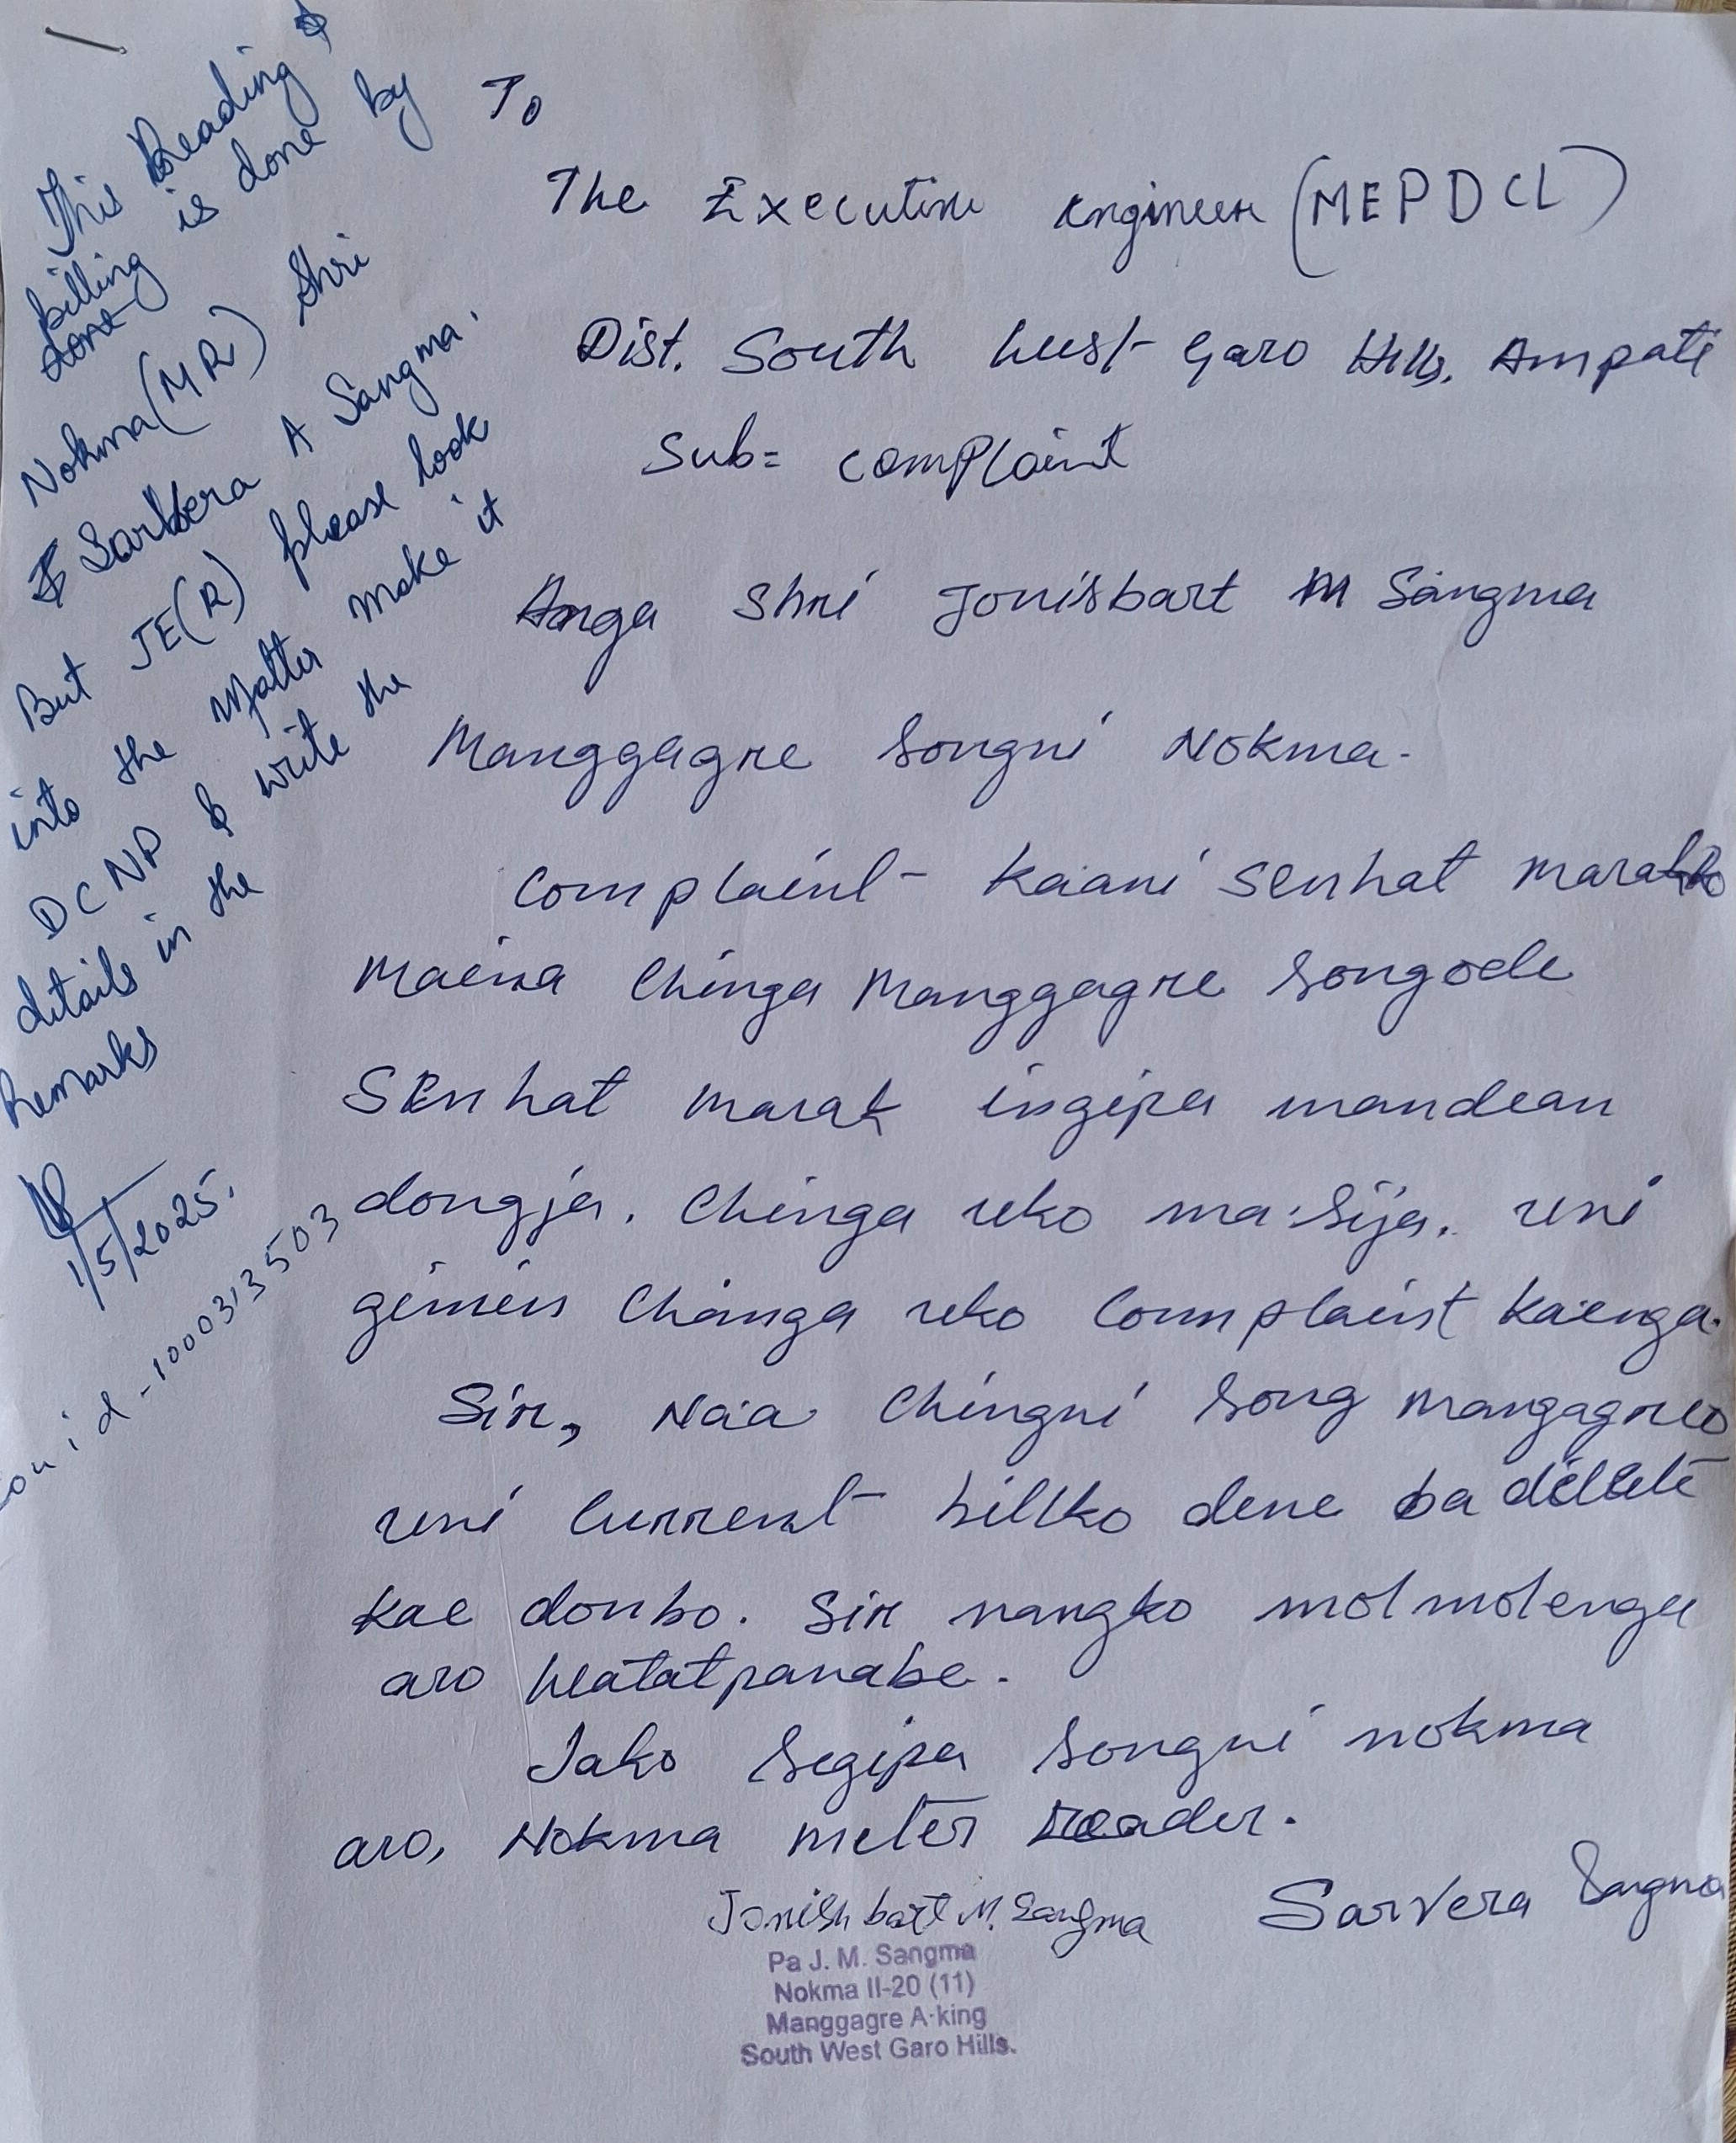 To
The Executive Engineer (MEPDCL)
Dist. South West Garo Hills. Ampati
Sub= complaint
Anga Shri Jonisbart M Sangma
Manggagre Songni Nokma-
Complaint- Ka·ani Senhat Marakko
Maina Chinga Manggagre Songode
Senhat Marak ingipa mandean
dongja. Chinga uko ma·sija. uni
gimin Chinga uko Complaint Ka·enga.
Sir, Na·a Chingni Song Mangagreo
uni Current billko dene ba delete
Kae donbo. Sir nangko molmolenga
aro
Iako Segipa Songni nokma
aro, Nokma meter reader.
Jonish bart M. Sangma Sarvera Sangma
Pa J. M. Sangma
Nokma II-20 (11)
Manggagre A·king
South West Garo Hills.
This Reading &
billing is done by
done
Nokma (MR) Shri
Sarbera A Sangma.
But JE(R) please look
into the matter make it
DC NP & write the
details in the
Remarks
1/5/2025.
con id - 1000313503